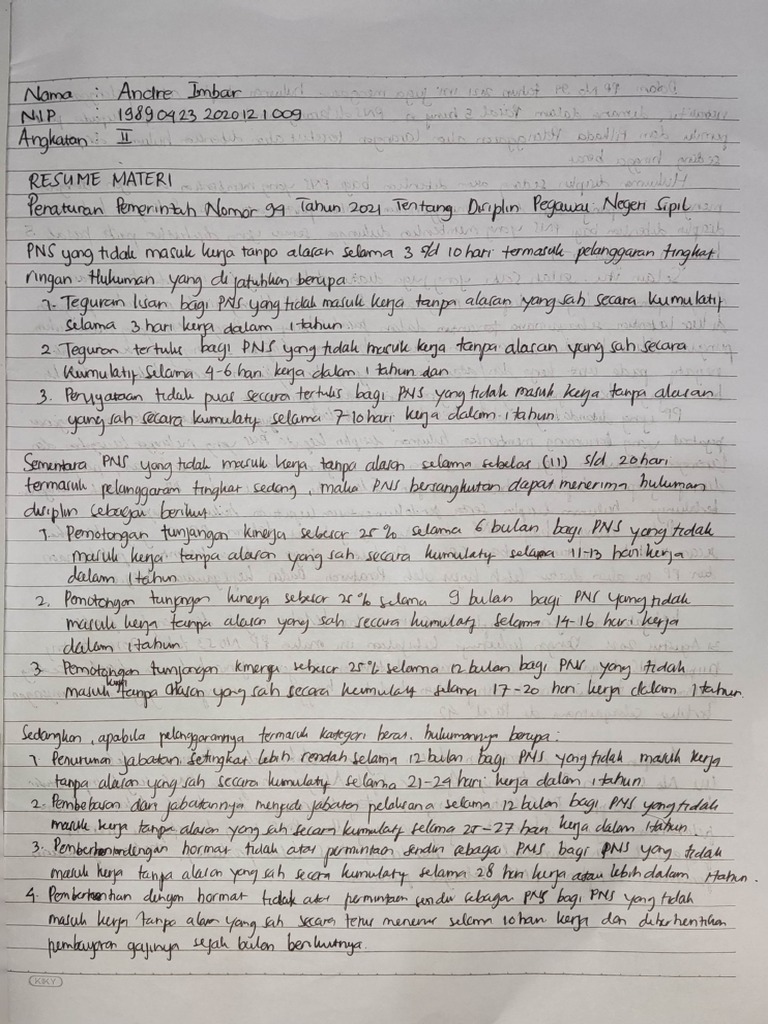 Nama : Andre Imbar
NIP : 19890423 202012 1 009
Angkatan : II
RESUME MATERI
Peraturan Pemerintah Nomor 94 Tahun 2021 Tentang Disiplin Pegawai Negeri Sipil
PNS yang tidak masuk kerja tanpa alasan selama 3 s/d 10 hari termasuk pelanggaran tingkat
ringan. Hukuman yang dijatuhkan berupa:
1. Teguran lisan bagi PNS yang tidak masuk kerja tanpa alasan yang sah secara kumulatif
selama 3 hari kerja dalam 1 tahun
2. Teguran tertulis bagi PNS yang tidak masuk kerja tanpa alasan yang sah secara
kumulatif selama 4-6 hari kerja dalam 1 tahun dan
3. Pernyataan tidak puas secara tertulis bagi PNS yang tidak masuk kerja tanpa alasan
yang sah secara kumulatif selama 7-10 hari kerja dalam 1 tahun
Sementara PNS yang tidak masuk kerja tanpa alasan selama sebelas (11) s/d 20 hari
termasuk pelanggaran tingkat sedang, maka PNS bersangkutan dapat menerima hukuman
disiplin sebagai berikut
1. Pemotongan tunjangan kinerja sebesar 25% selama 6 bulan bagi PNS yang tidak
masuk kerja tanpa alasan yang sah secara kumulatif selama 11-13 hari kerja
dalam 1 tahun
2. Pemotongan tunjangan kinerja sebesar 25% selama 9 bulan bagi PNS yang tidak
masuk kerja tanpa alasan yang sah secara kumulatif selama 14-16 hari kerja
dalam 1 tahun
3. Pemotangan tunjangan kinerja sebesar 25% selama 12 bulan bagi PNS yang tidak
masuk kerja tanpa alasan yang sah secara kumulatif selama 17-20 hari kerja dalam 1 tahun.
Sedangkan, apabila pelanggarannya termasuk kategori berat. hukumannya berupa:
1. Penurunan jabatan setingkat lebih rendah selama 12 bulan bagi PNS yang tidak masuk kerja
tanpa alasan yang sah secara kumulatif selama 21-24 hari kerja dalam 1 tahun
2. Pembebasan dari jabatannya menjadi jabatan pelaksana selama 12 bulan bagi PNS yang tidak
masuk kerja tanpa alasan yang sah secara kumulatif selama 25-27 hari kerja dalam 1 tahun.
3. dengan hormat tidak atas permintaan sendiri sebagai PNS bagi PNS yang tidak
masuk kerja tanpa alasan yang sah secara kumulatif selama 28 hari kerja atau lebih dalam 1 tahun.
4. Pemberhentian dengan hormat tidak atas permintaan sendiri sebagai PNS bagi PNS yang tidak
masuk kerja tanpa alasan yang sah secara terus menerus selama 10 hari kerja dan diberhentikan
pembayaran gajinya sejak bulan berikutnya.
KIKY